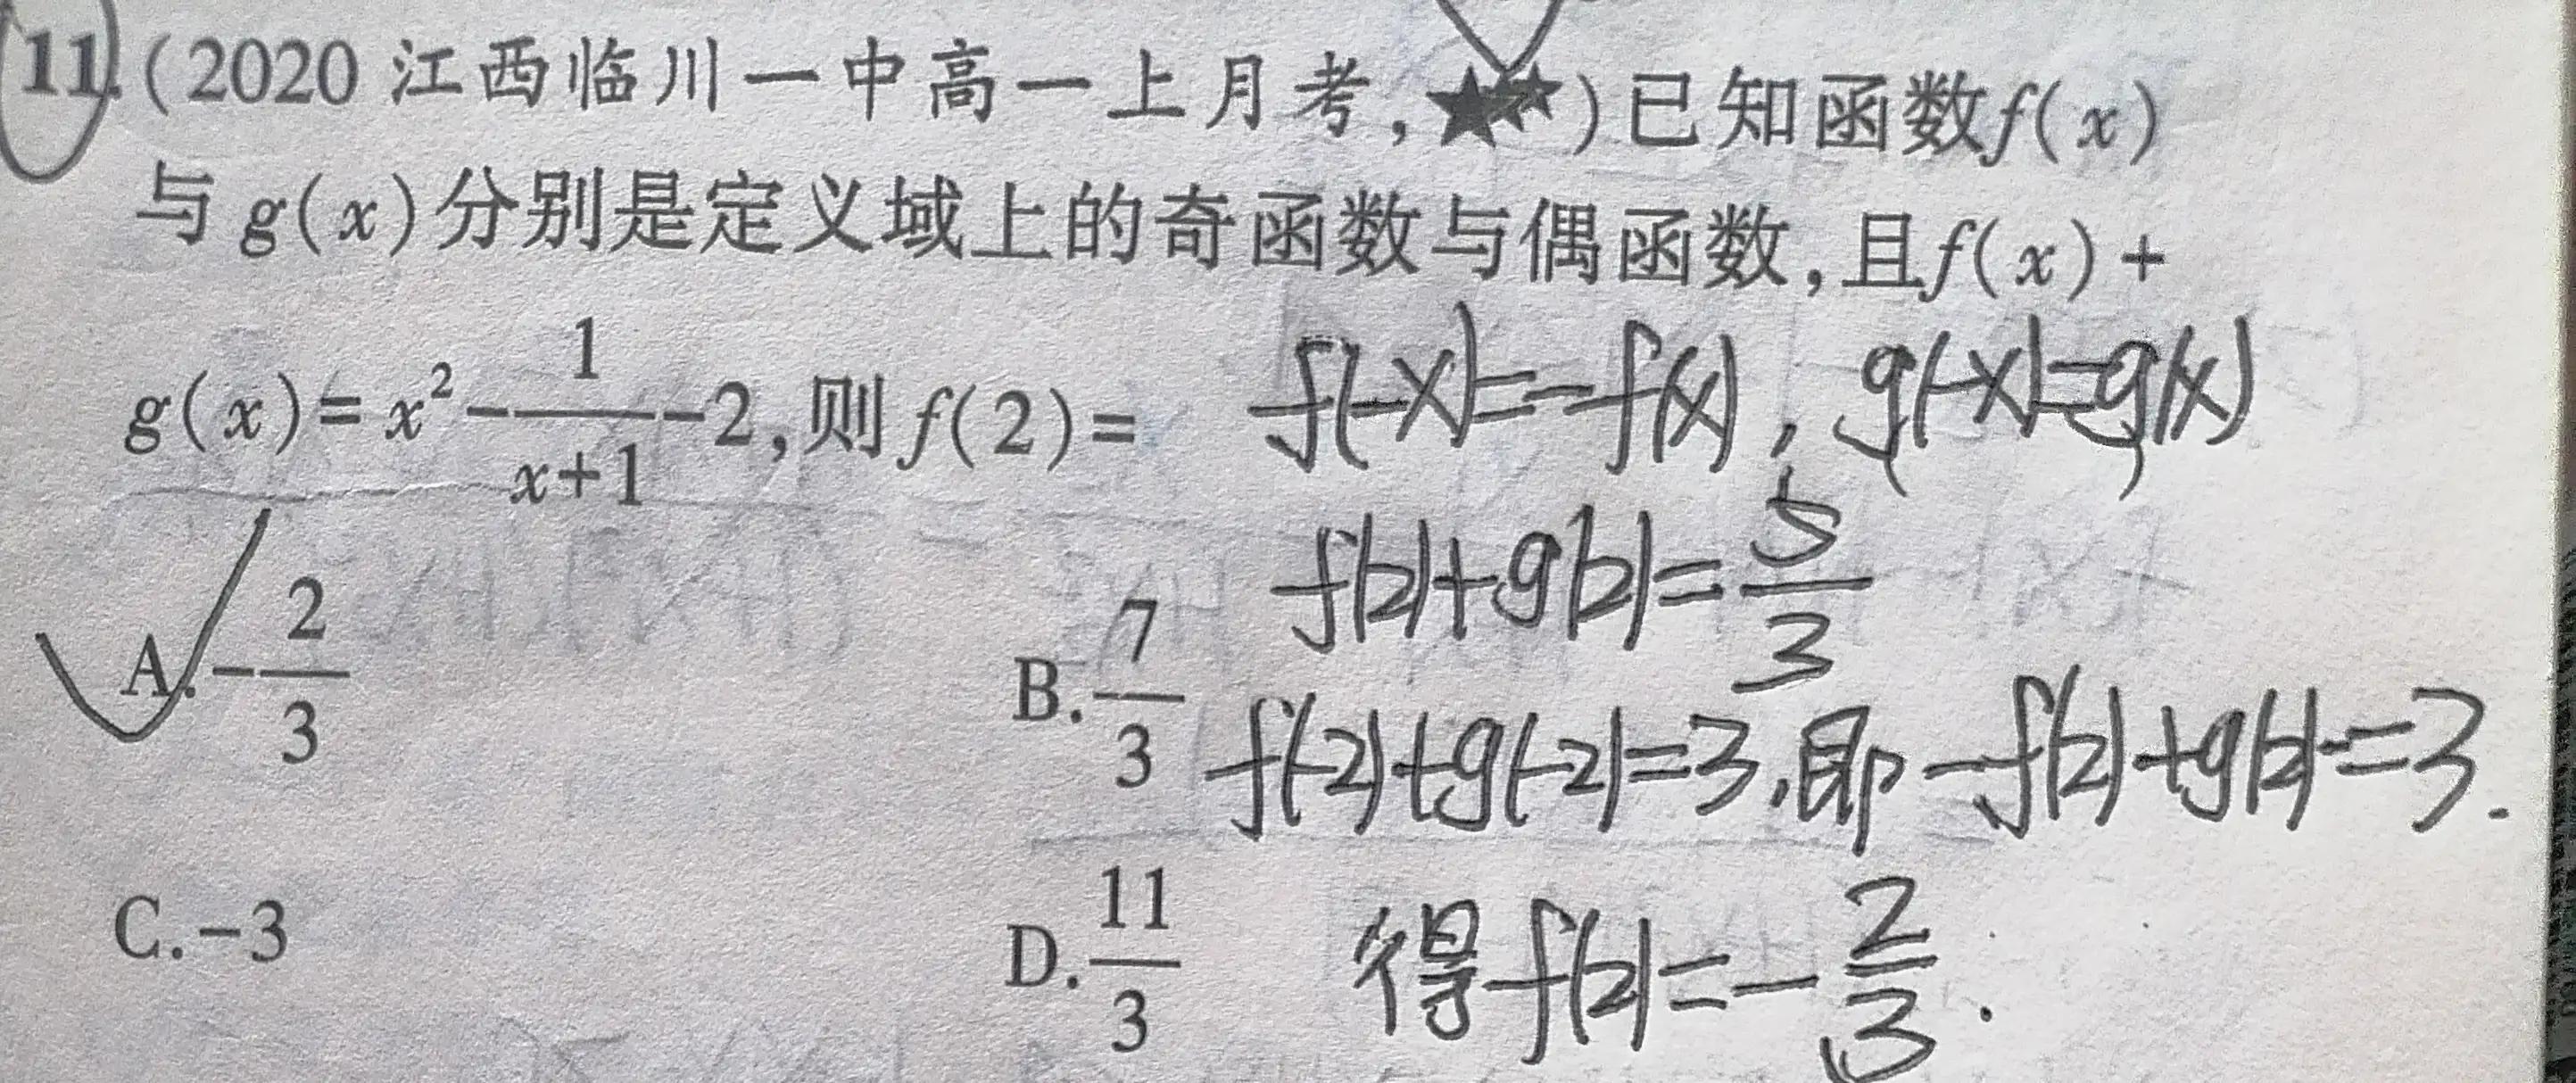 11.(2020 江西临川一中高一上月考,★★)已知函数f(x)
与g(x)分别是定义域上的奇函数与偶函数,且f(x)+
g(x)=x²-1/(x+1)-2,则f(2)=
f(-x)=-f(x),g(-x)=g(x)
f(2)+g(2)=5/3
A.-2/3 B.7/3
f(-2)+g(-2)=3,即-f(2)+g(2)=3.
C.-3 D.11/3
得f(2)=-2/3.